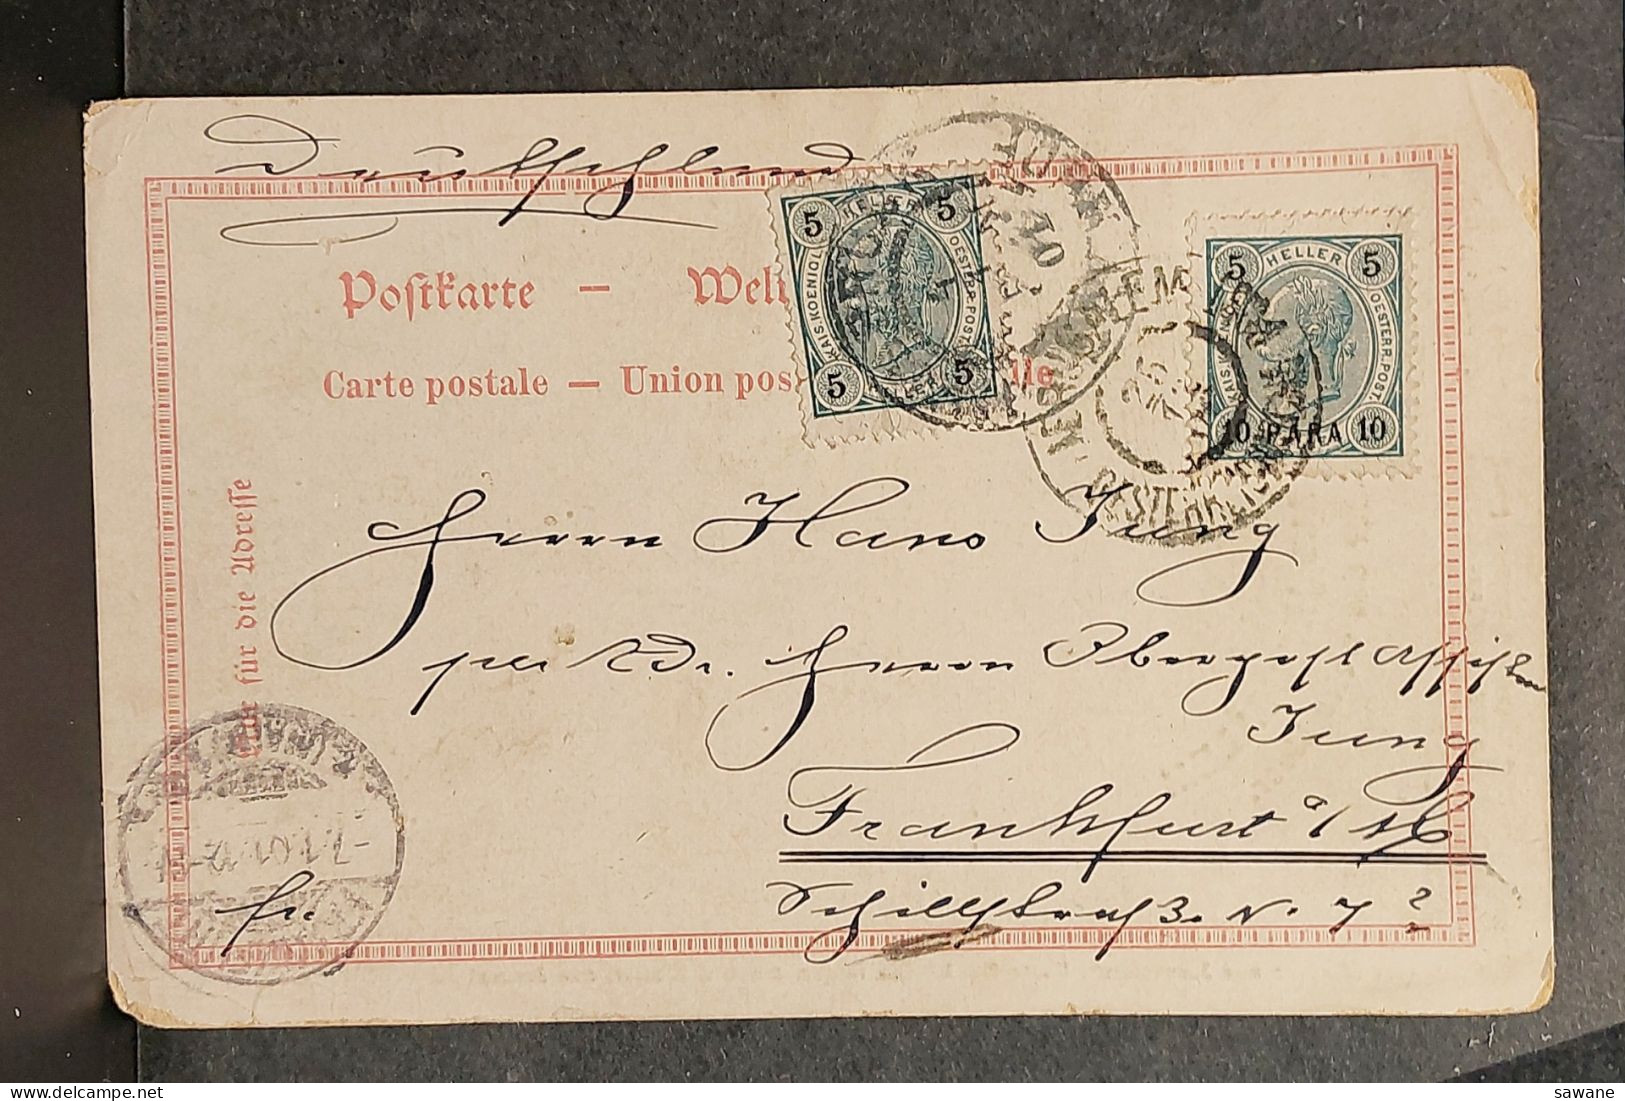 Deutschland
Postkarte — Welt
Carte postale — Union pos
Nur für die Adresse
5 HELLER 5
KAIS. KOENIGL. OESTERR. POST.
5 HELLER 5
5 HELLER 5
KAIS. KOENIGL. OESTERR. POST.
10 PARA 10
JERUSALEM
OESTERREICH
Herrn Hans Jung
per Adr. Herrn Oberpostassistn
Jung
Frankfurt a/M
Schillstraß 3. N. 7?
fr.
7.1.01.12-
sawane